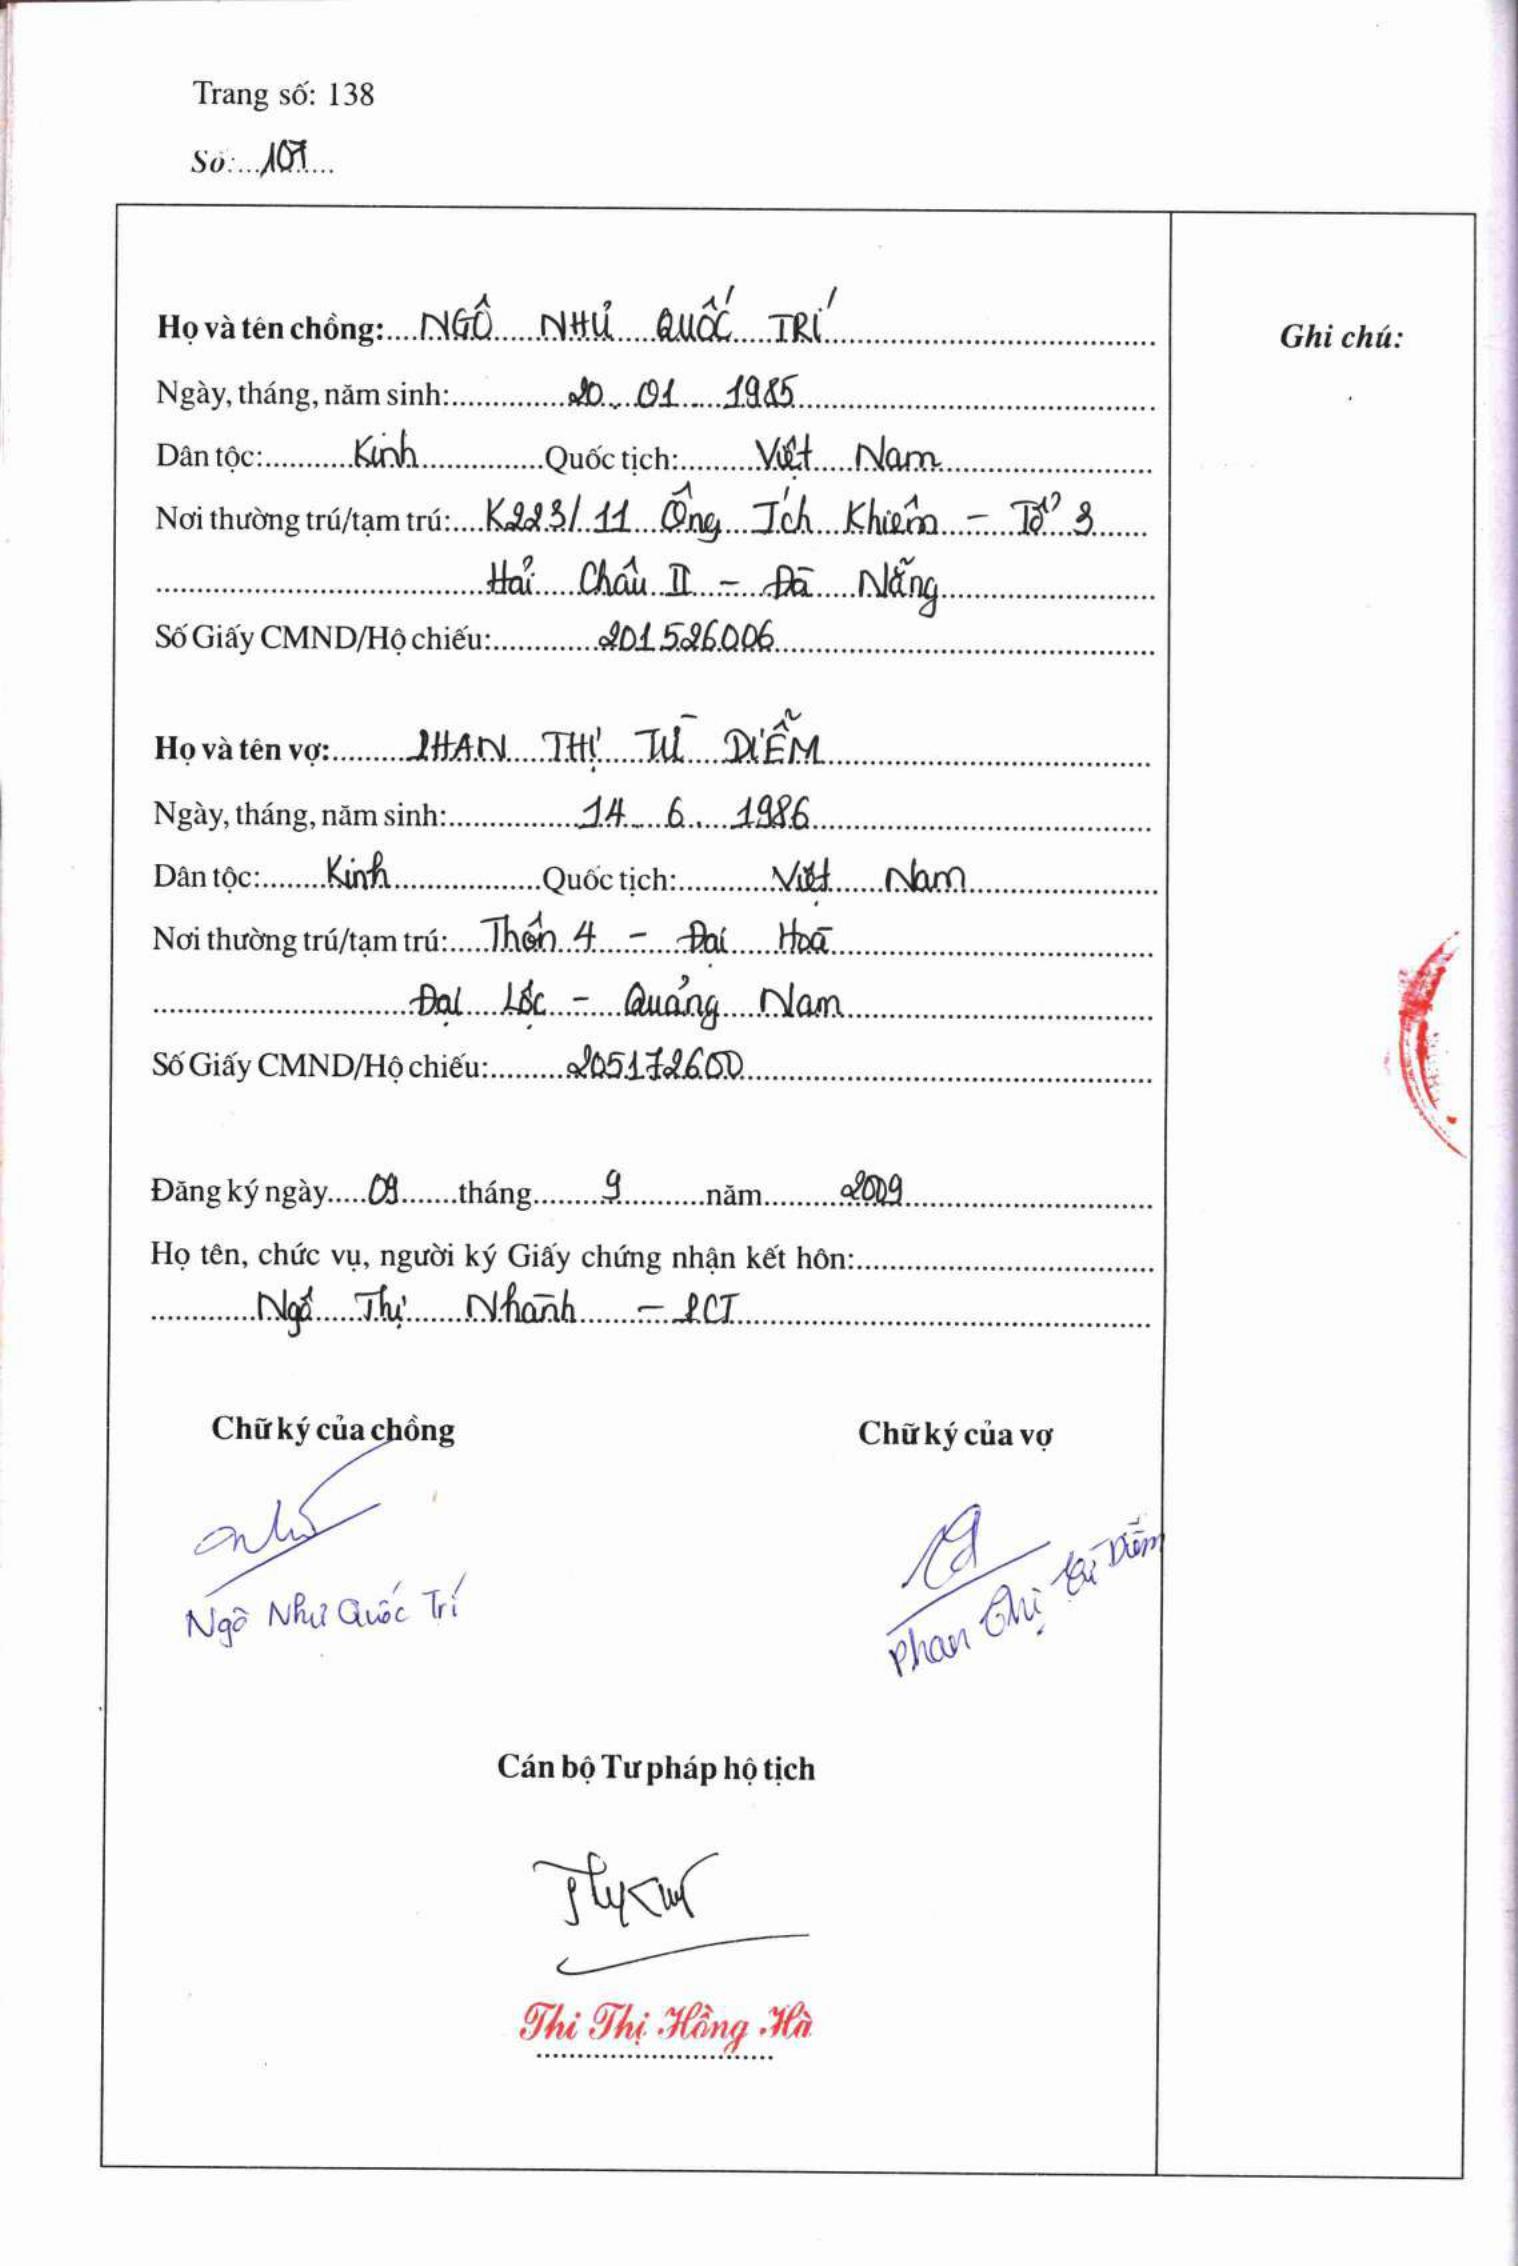 Trang số: 138
Số: 107
Họ và tên chồng: NGÔ NHƯ QUỐC TRÍ
Ghi chú:
Ngày, tháng, năm sinh: 20 01 1985
Dân tộc: Kinh Quốc tịch: Việt Nam
Nơi thường trú/tạm trú: K223/11 Ông Ích Khiêm - Tổ 3
Hải Châu II - Đà Nẵng
Số Giấy CMND/Hộ chiếu: 201526006
Họ và tên vợ: PHAN THỊ TÚ DIỄM
Ngày, tháng, năm sinh: 14 6 1986
Dân tộc: Kinh Quốc tịch: Việt Nam
Nơi thường trú/tạm trú: Thôn 4 - Đại Hoà
Đại Lộc - Quảng Nam
Số Giấy CMND/Hộ chiếu: 205172600
Đăng ký ngày 09 tháng 9 năm 2009
Họ tên, chức vụ, người ký Giấy chứng nhận kết hôn:
Ngô Thị Nhành - PCT
Chữ ký của chồng
Chữ ký của vợ
Ngô Như Quốc Trí
Phan Thị Tú Diễm
Cán bộ Tư pháp hộ tịch
Thi Thị Hồng Hà